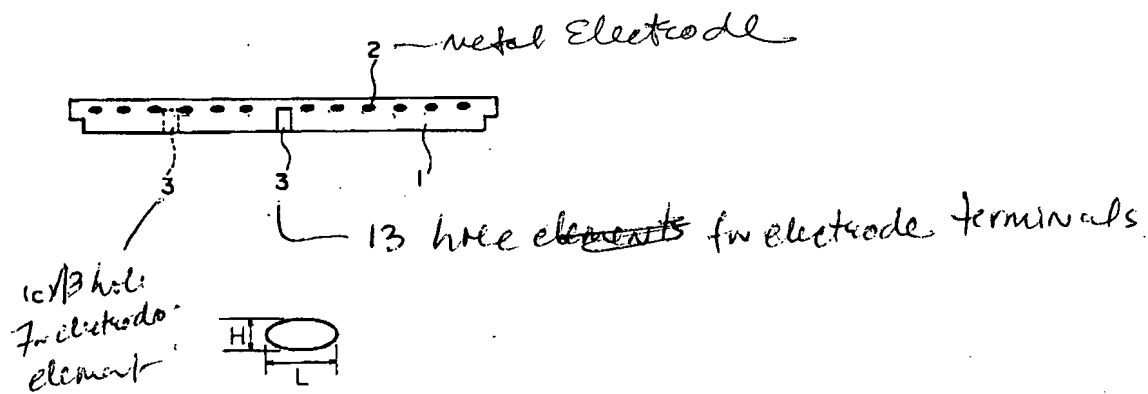 2 — metal Electrode
3
3
1
13 hole elements for electrode terminals
hole
electrode
element
H
L